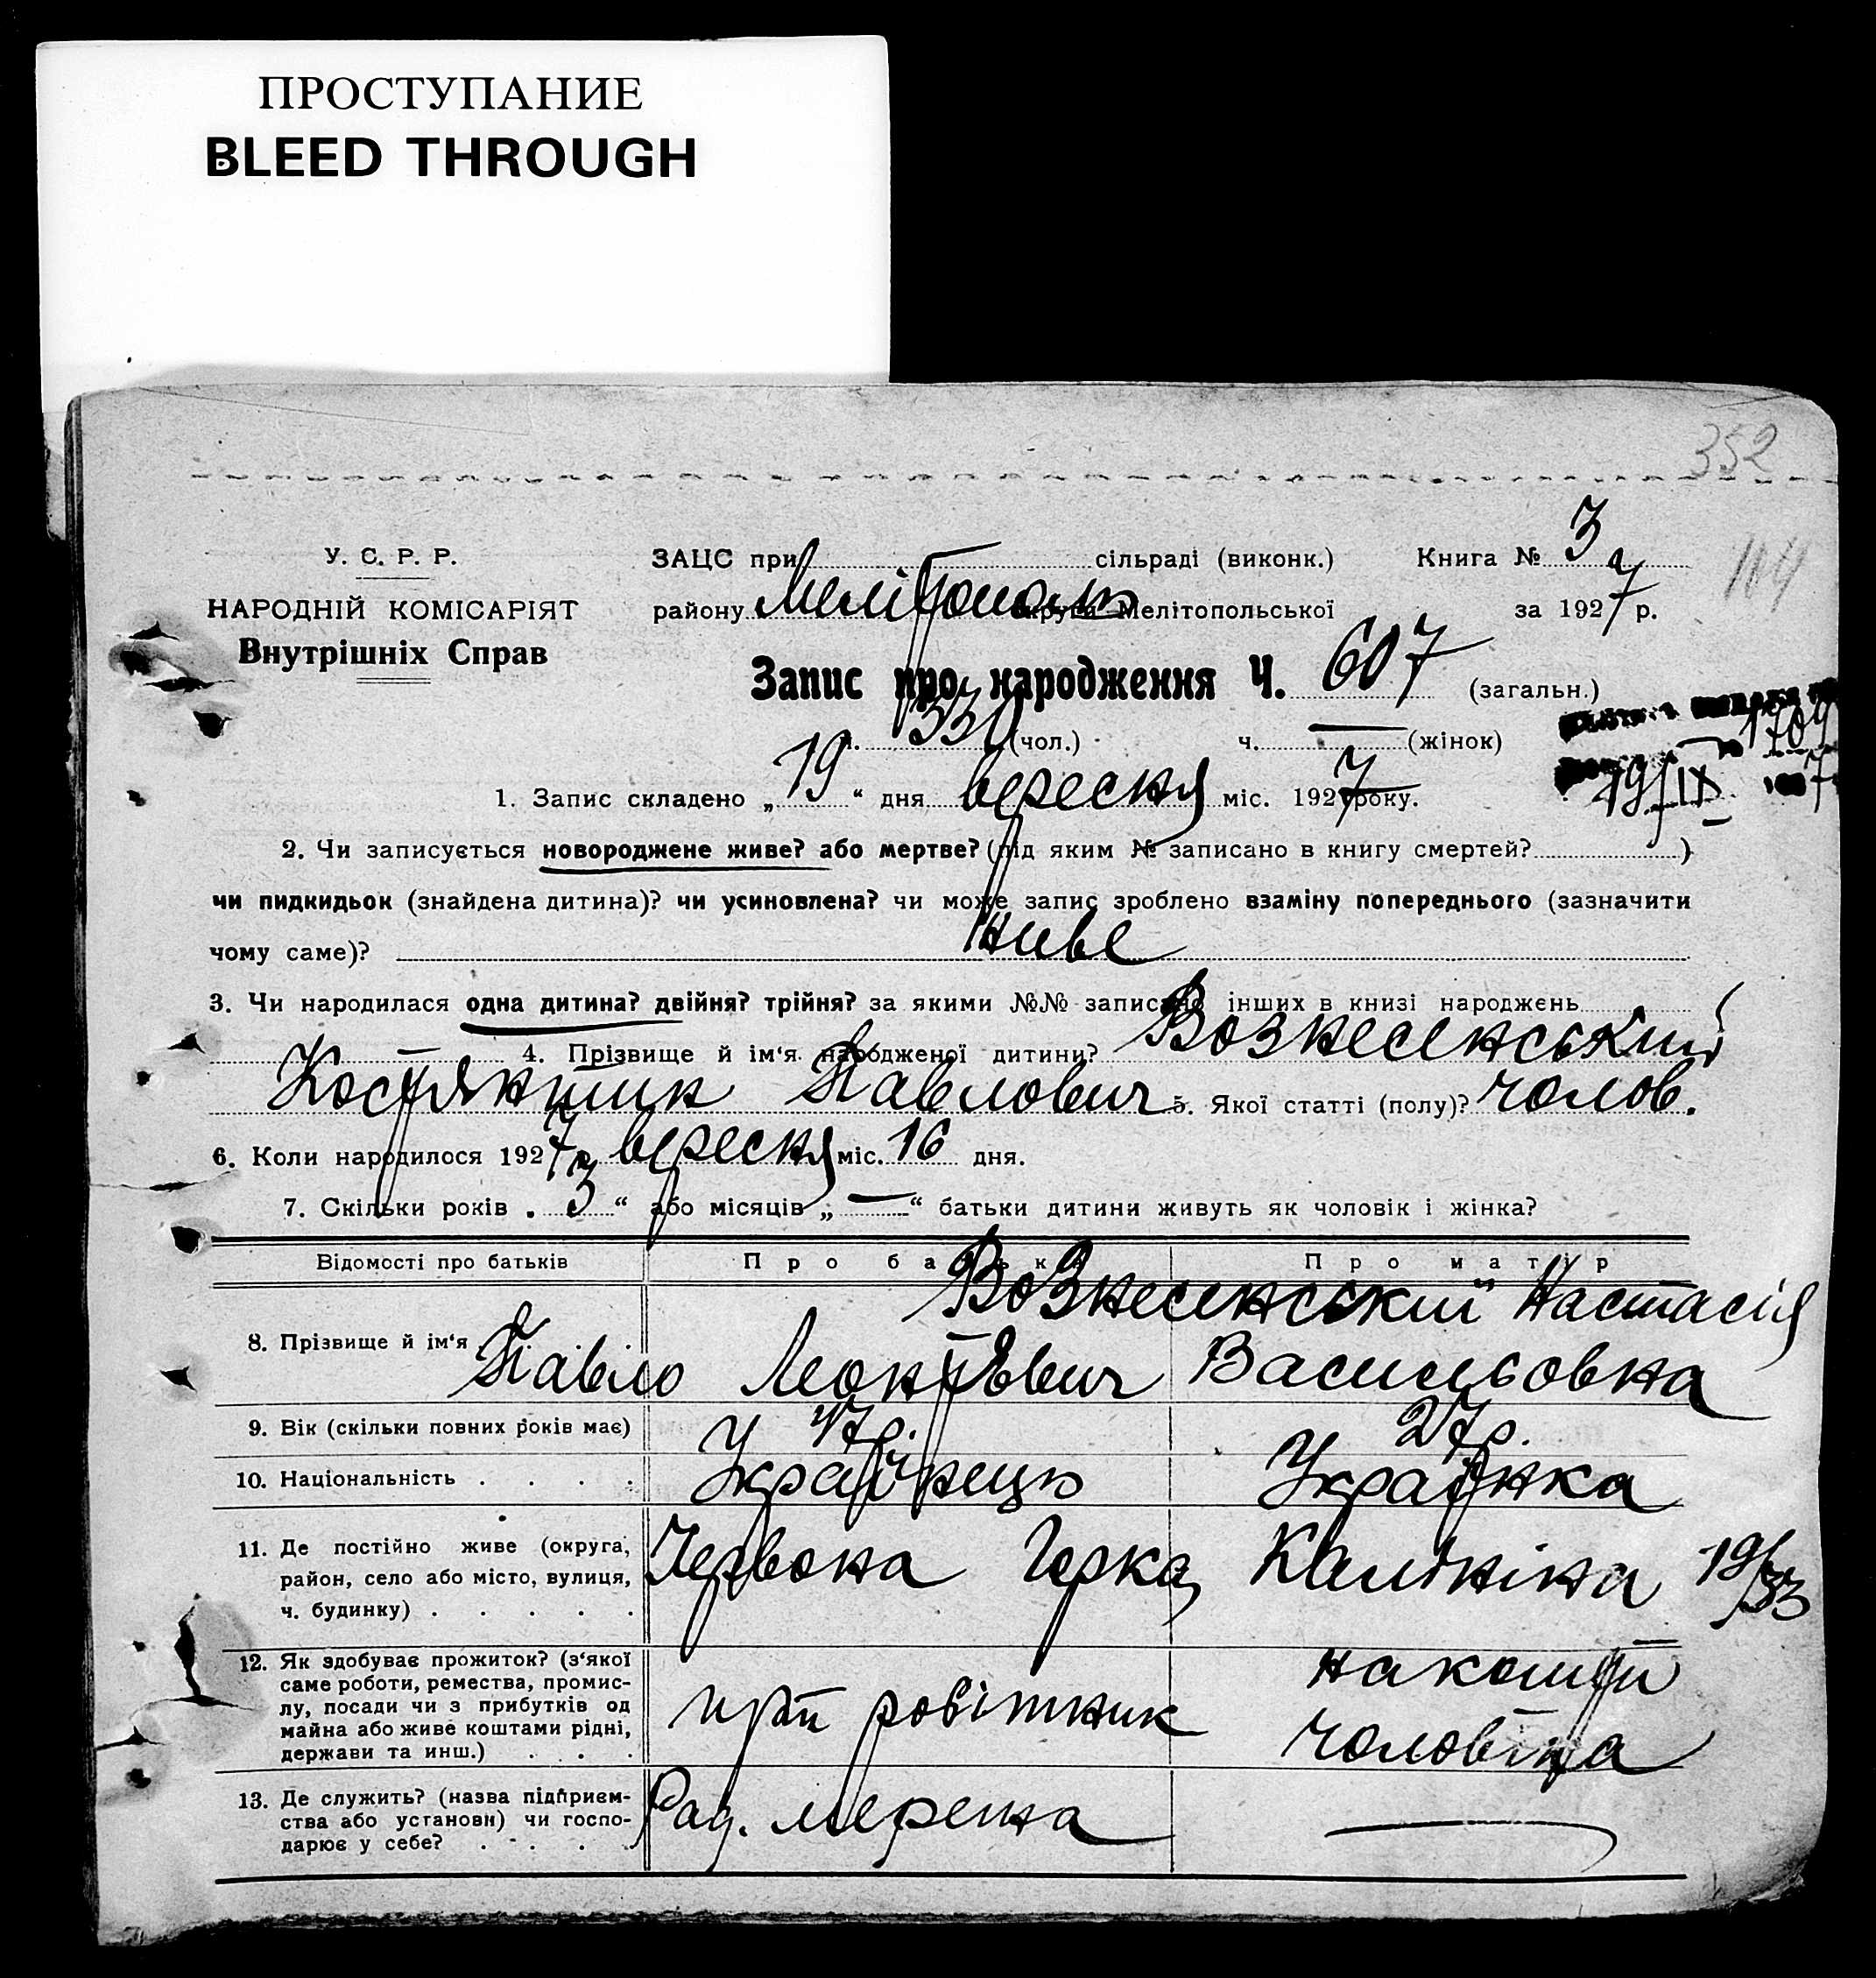 ПРОСТУПАНИЕ
BLEED THROUGH
352
У. С. Р. Р.
НАРОДНІЙ КОМІСАРІЯТ
Внутрішніх Справ
ЗАЦС при сільраді (виконк.) Книга № 3а
114
району Мелітополь округи Мелітопольської за 1927 р.
Запис про народження Ч. 607 (загальн.)
ч. 330 (чол.) ч. — (жінок)
1709
19/IX 7
1. Запис складено „19“ дня вересня міс. 1927 року.
2. Чи записується новороджене живе? або мертве? (під яким № записано в книгу смертей? )
чи пидкидьок (знайдена дитина)? чи усиновлена? чи може запис зроблено взаміну попереднього (зазначити
чому саме)? живе
3. Чи народилася одна дитина? двійня? трійня? за якими №№ записано інших в книзі народжень
4. Прізвище й ім‘я народженої дитини? Вознесенський
Костянтин Павлович 5. Якої статті (полу)? чолов.
6. Коли народилося 1927 р. вересня міс. 16 дня.
7. Скільки років „3“ або місяців „—“ батьки дитини живуть як чоловік і жінка?
Відомості про батьків Про батька Про матір
8. Прізвище й ім‘я Вознесенський Настасія
Павло Леонтьевич Васильовна
9. Вік (скільки повних років має) 47 р. 27 р.
10. Національність . . . . Українець Українка
11. Де постійно живе (округа,
район, село або місто, вулиця,
ч. будинку) . . . . .
Червона Горка, Калініна 19/33
12. Як здобуває прожиток? (з‘якої
саме роботи, ремества, промис-
лу, посади чи з прибутків од
майна або живе коштами рідні,
держави та инш.) . . .
робітник
на кошти
чоловіка
13. Де служить? (назва підприєм-
ства або установи) чи госпо-
дарює у себе? . . . .
Рад. мережа —